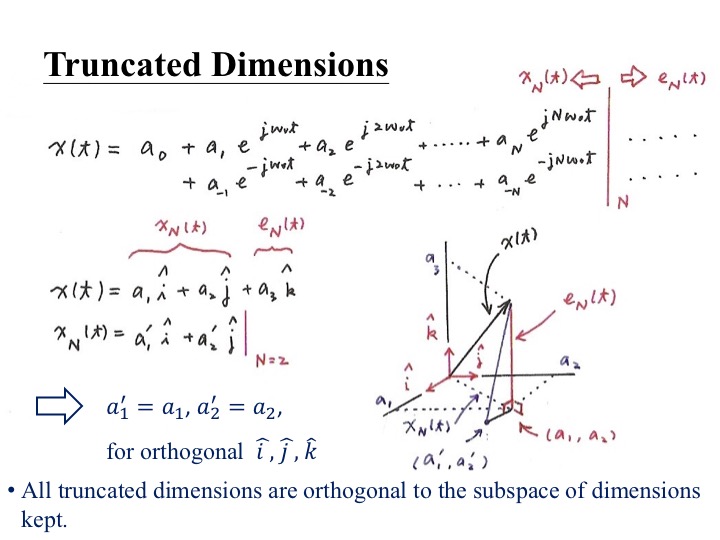 Truncated Dimensions
x_N(t) ⇐ ⇒ e_N(t)
x(t) = a_0 + a_1 e^{jω_0t} + a_2 e^{j2ω_0t} + ····· + a_N e^{jNω_0t} ·····
+ a_{-1} e^{-jω_0t} + a_{-2} e^{-j2ω_0t} + ··· + a_{-N} e^{-jNω_0t} ·····
N
x_N(t) e_N(t)
x(t) = a_1 î + a_2 ĵ + a_3 k̂
x_N(t) = a_1' î + a_2' ĵ
N=2
x(t)
a_3
e_N(t)
k̂
ĵ
a_2
î
a_1
x_N(t)
(a_1, a_2)
(a_1', a_2')
a_1′ = a_1, a_2′ = a_2,
for orthogonal î , ĵ , k̂
• All truncated dimensions are orthogonal to the subspace of dimensions
kept.